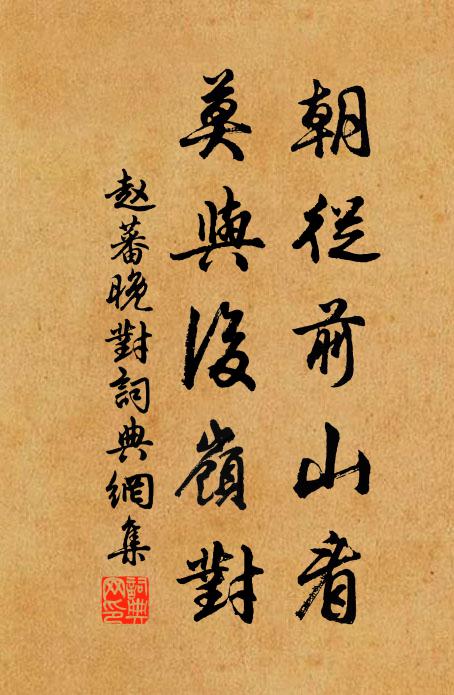 朝從前山看
莫與後嶺對
赵蕃晚對詞典網集
詞典网印